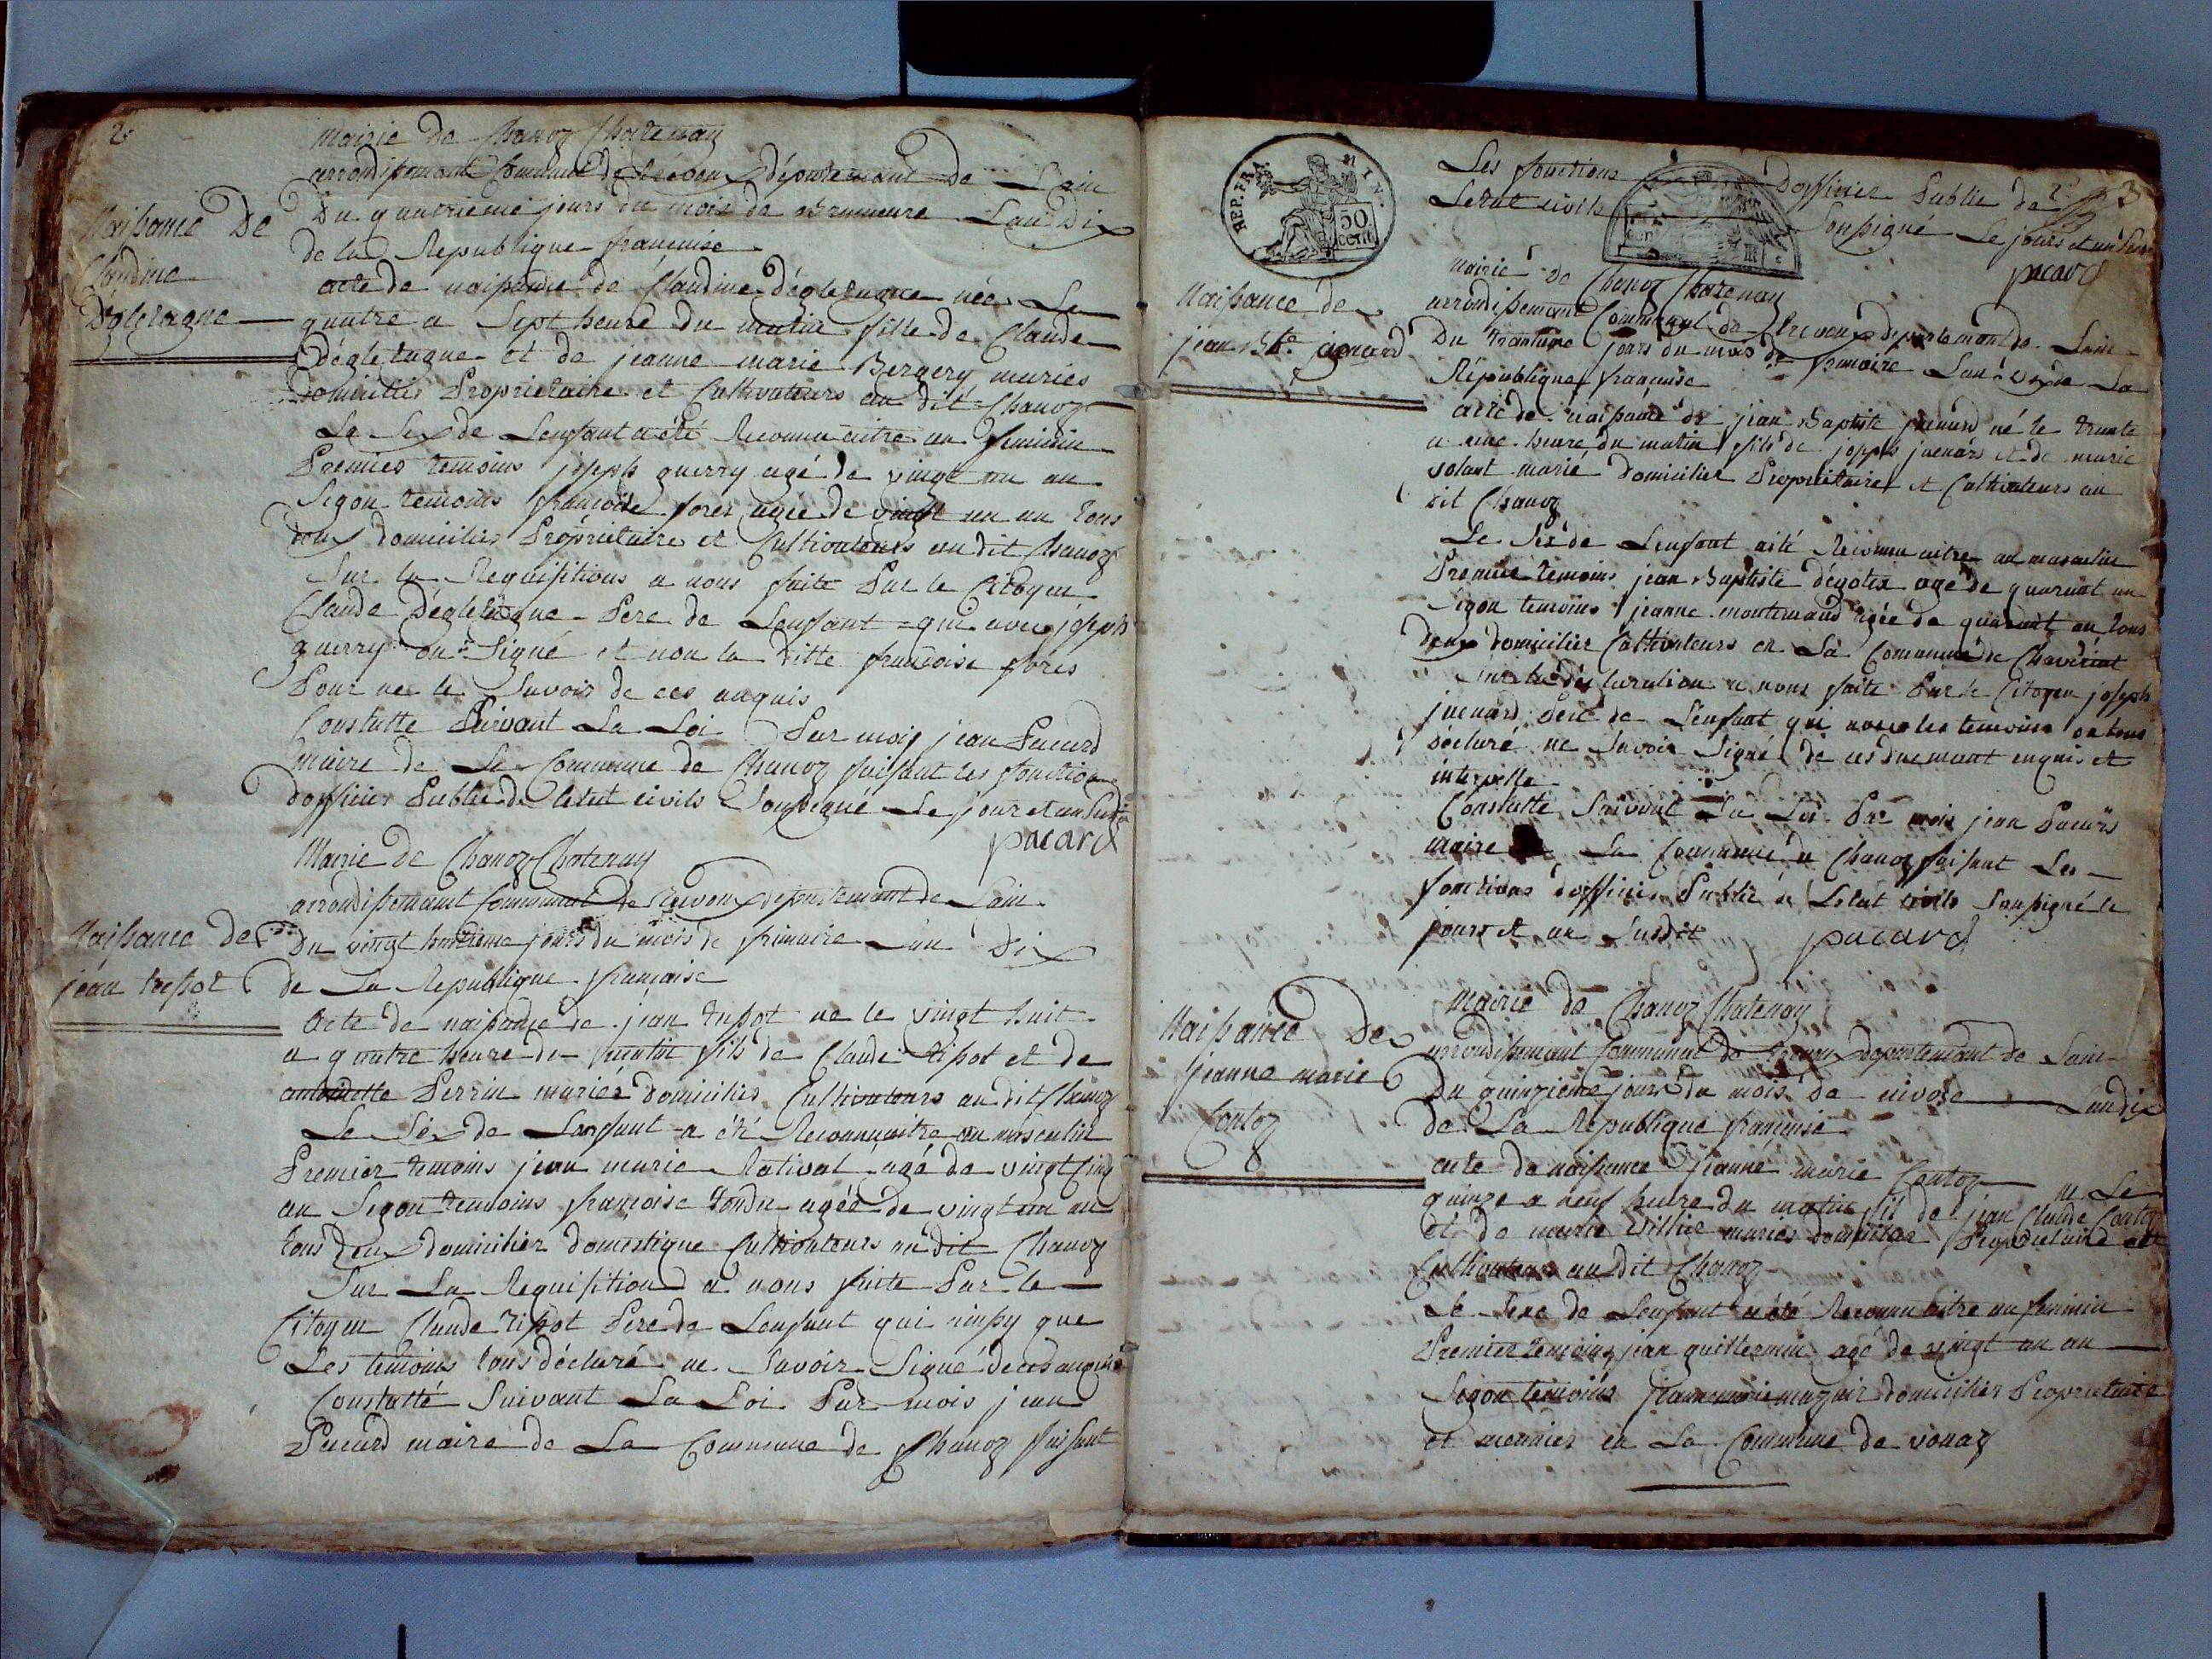 2
mairie de Chanoz Chatenay
arrondissement Communal de Trévoux département de Lain
Naissance De
Claudine
Dégletagne
Du quatrieme jours du mois de Brumeure Lan Dix
de la Republique françoise
acte de naissance de Claudine dégletagne née Le
quatre a Sept heure du matin fille de Claude
dégletagne et de jeanne marie Bergery mariés
domicilies Proprietaire et Cultivateurs au dit Chanoz
Le Sex de Lenfant a été Reconnu aitre au feminin
Premier temoins joseph guerry agé de vingt un an
Segon temoins françoise forés agée de vingt un an tous
deux domicilies Propriétaire et Cultivateurs au dit Chanoz
Sur la Requisitions a nous faite Par le Citoyen
Claude Dégletagne Pere de Lenfant qui avec joseph
guerry ont Signé et non la ditte françoise forés
Pour ne le Savoir de ces anquis
Constatte Suivant La Loi Par mois jean Pacard
maire de La Commune de Chanoz faisant les fonctions
dofficier Public de Letat civils Soussigné Le jour et an Susdit
pacard
Mairie de Chanoz Chatenay
arrondissemant Communal de Trévoux departemant de Lain
Naissance de
jean tissot
Du vingt huitieme jours du mois de frimaire Lan Dix
de La Republique française
Acte de naissance de jean tissot né le vingt huit
a quatre heure du matin fils de Claude tissot et de
antoinette Perrin mariés domicilies Cultivateurs au dit Chanoz
Le Séx de Lanfant a été Reconnu aitre au masculin
Premier temoins jean marie Rativat agé de vingt Cinq
an Segon temoins françoise tondu agée de vingt un an
tous deux domicilier domestique Cultivateurs au dit Chanoz
Sur La Requisition a nous faite Par le
Citoyen Claude tissot Pere de Lenfant qui ainssy que
Les temoins tous déclaré ne Savoir Signé de ces anquis
Constatté Suivant La Loi Par mois jean
Pacard maire de La Commune de Chanoz faisant
REP. FRA.
50 cent.
Les fonctions Dofficier Public de
Letat civils Soussigné Le jours et an Susdit
3
pacard
mairie de Chanoz Chatenay
arrondissemant Communal de Trevoux departemant de Lain
Naissance de
jean Bte juenard
Du trantieme jours du mois de frimaire Lan dix de La
République française
acte de naissance de jean Baptiste juenard né le trante
a une heure du matin fils de joseph juenard et de marie
volant marié domicilier Proprietaire et Cultivateurs au
dit Chanoz
Le Sex de Lenfant a été Reconnu aitre au masculin
Premier temoins jean Baptiste dégotex agé de quarant an
Segon temoins jeanne montemand agée de quarant an tous
deux domicilier Cultivateurs en La Commune de Chaveriat
Sur la déclaration a nous faite Par le Citoyen joseph
juenard Pere de Lenfant qui avec les temoins on tous
déclaré ne Savoir Signé de ces duement enquis et
interpelle
Constatté Suivant La Loi Par mois jean Pacard
maire La Commune de Chanoz faisant Les
fonctions dofficier Public de Letat civils Soussigné le
jours et an Susdit pacard
Mairie de Chanoz Chatenay
arrondissemant Communal de Trevoux departemant de Lain
Naissance De
jeanne marie
Contoz
Du quinzieme jours du mois de nivose Lan dix
de La Republique française
acte de naissance jeanne marie Contoz né Le
quinze a neuf heure du matin fil de jean Claude Contoz
et de marie villier mariés domicilier Propriétaire et
Cultivateurs au dit Chanoz
Le Sexe de Lenfant a été Reconnu aitre au feminin
Premier temoins jean guillermin agé de vingt un an
Segon temoins jeanne marie mazuir domicilier Proprietaire
et meunier en La Commune de vonaz